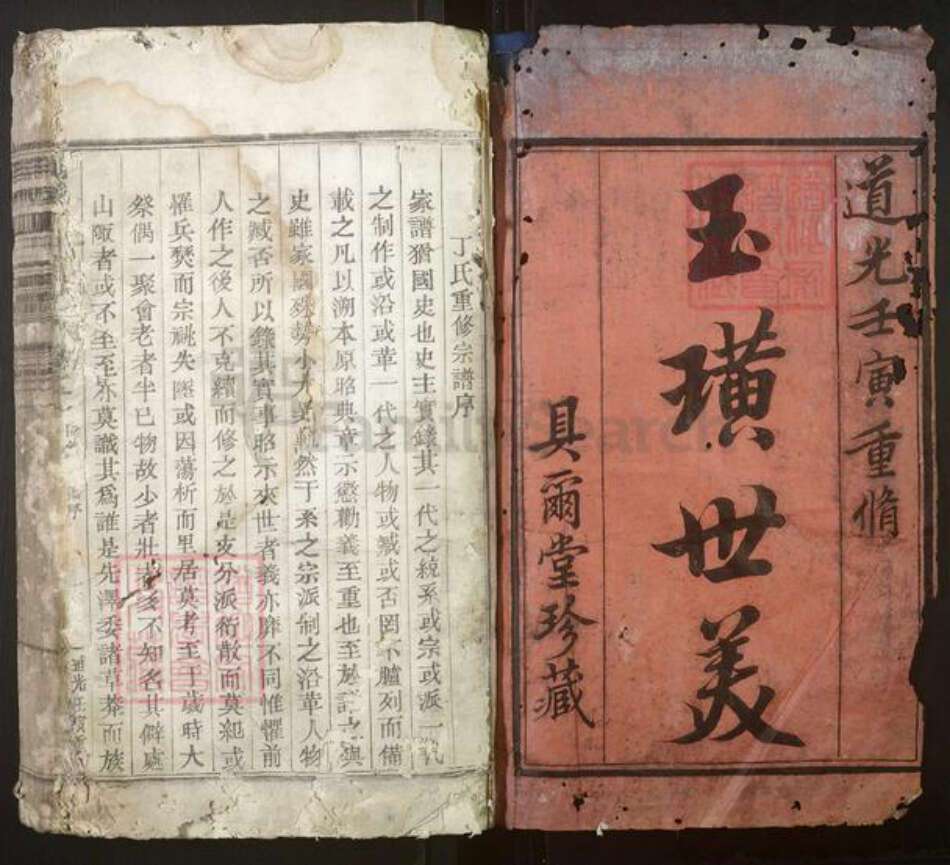 道光壬寅重脩
玉璜世美
具爾堂珍藏
丁氏重修宗譜序
家譜猶國史也史主實錄其一代之統系或宗或派一
之制作或沿或革一代之人物或臧或否罔不臚列而備
載之凡以溯本原昭典章示懲勸義至重也至於譜之與
史雖家國殊勢小大然于系之宗派制之沿革人物
之臧否所以錄其實事昭示來世者義亦靡不同惟懼前
人作之後人不克續而修之於是支分派衍散而莫紀或
罹兵燹而宗祧失墜或因蕩析而里居莫考至于歲時大
祭偶一聚會老者半已物故少者壯者多不知名其僻處
山陬者或不至至亦莫識其為誰是先澤委諸草莽而族
FamilySearch